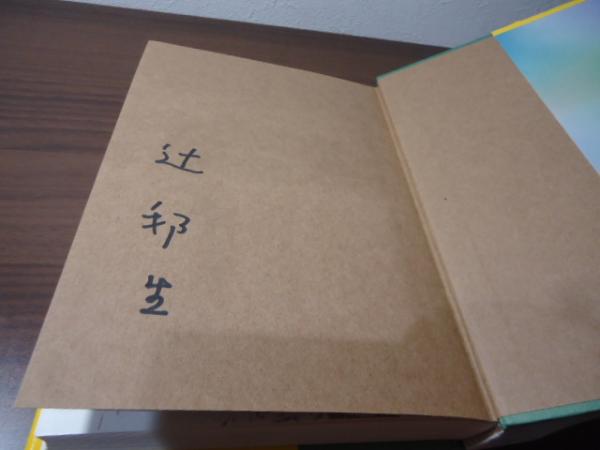 辻邦生